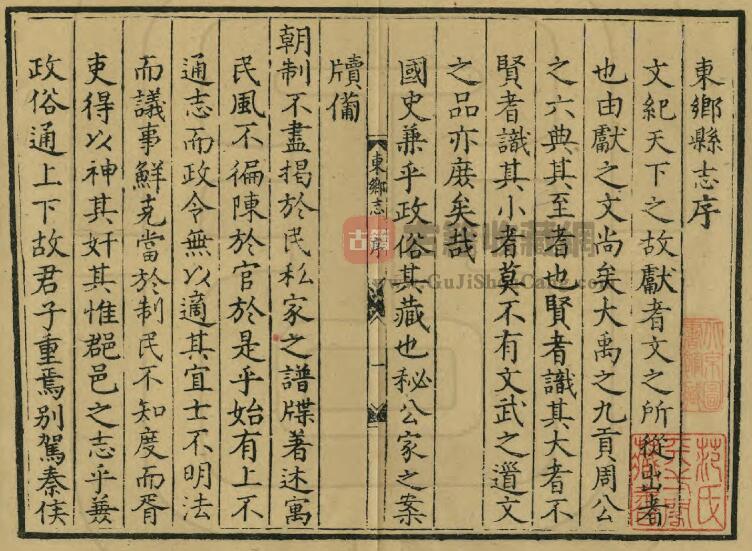 東鄉縣志序
文紀天下之故獻者文之所從出者
也由獻之文尚矣大禹之九貢周公
之六典其至者也賢者識其大者不
賢者識其小者莫不有文武之道文
之品亦庶矣哉
國史兼乎政俗其藏也秘公家之案
牘備
東鄉志 序 一
朝制不盡揭於民私家之譜牒著述寓
民風不徧陳於官於是乎始有上不
通志而政令無以適其宜士不明法
而議事鮮克當於制民不知度而胥
吏得以神其奸其惟郡邑之志乎兼
政俗通上下故君子重焉别駕秦侯
古籍 古籍收藏網
www.GuJiShouCang.com
范氏